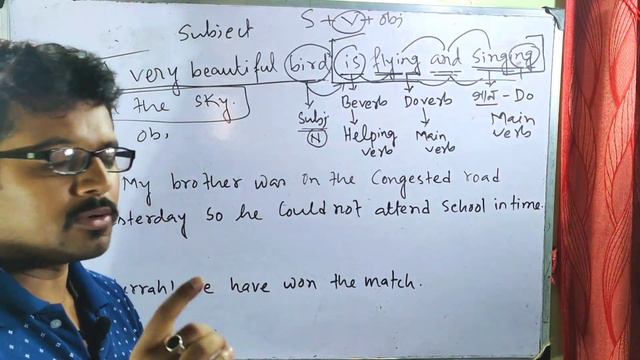 Subject S + V + obj
very beautiful bird is flying and singing
the sky.
Subj Beverb Doverb गान - Do
ob, N Helping verb Main verb Main verb
My brother was on the congested road
sterday so he could not attend school in time.
urrah! e have won the match.